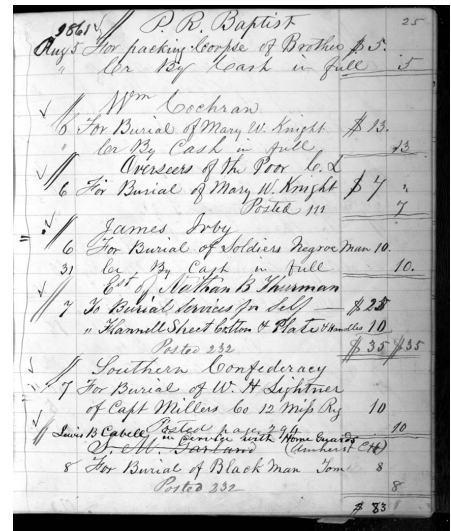 1861 P. R. Baptist 25
Aug 5 For packing Corpse of Brother $ 5.
" Cr By Cash in full 5
Wm Cochran
6 For Burial of Mary W. Knight $ 13.
" Cr By Cash in full 13
Overseers of the Poor C. L
6 For Burial of Mary W. Knight $ 7 "
Posted 111 7
James Irby
6 For Burial of Soldiers Negroe Man 10.
31 Cr By Cash in full 10.
Est of Nathan B Thurman
7 To Burial Services for Self $ 25
" Flannell Sheet Cotton & Plate & Handles 10
Posted 232 $ 35 $35
Southern Confederacy
7 For Burial of W. H Lightner
of Capt Millers Co 12 Miss Reg 10
Posted page 294 10
Lewis B Cabell in service with Home Guards
S. M. Garland (Amherst CH)
8 For Burial of Black Man Tom 8
Posted 232 8
$ 83